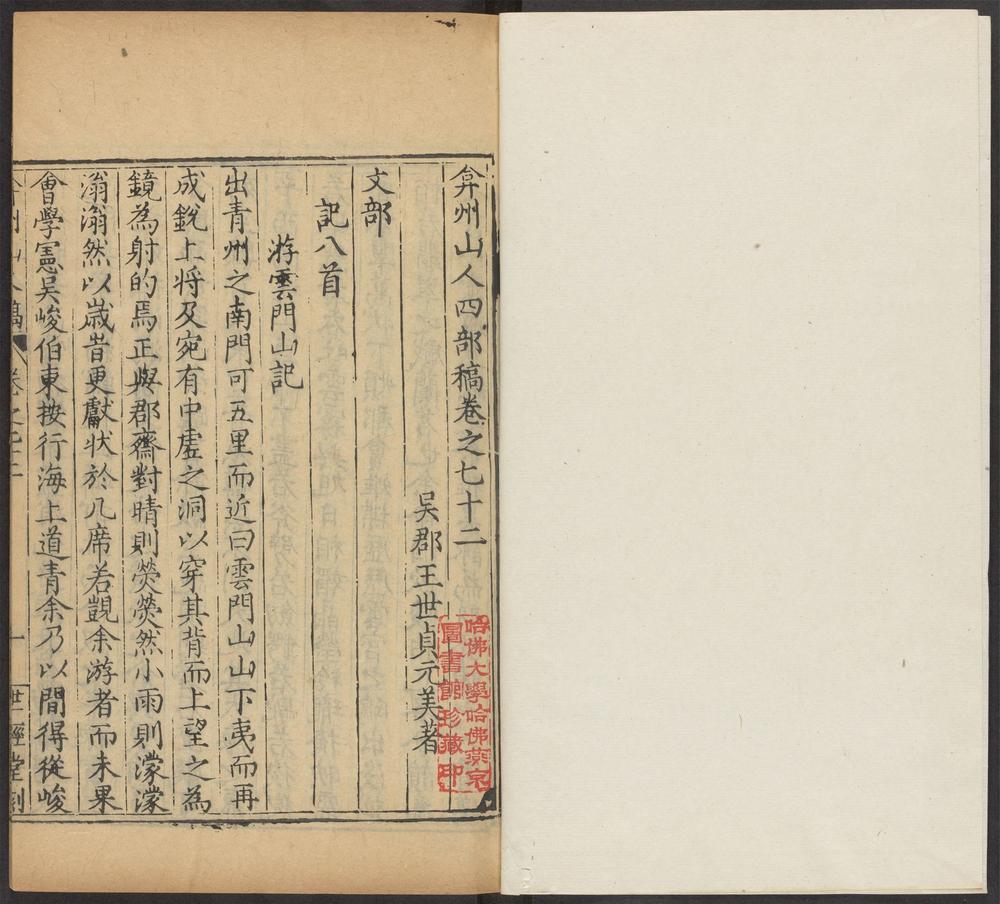 弇州山人四部稿卷之七十二
吳郡王世貞元美著
文部
記八首
游雲門山記
出青州之南門可五里而近曰雲門山山下夷而再
成銳上將及宛有中虛之洞以穿其背而上望之為
鏡為射的焉正與郡齋對晴則熒熒然小雨則濛濛
滃滃然以歲昔更獻狀於几席若覬余游者而未果
會學憲吳峻伯東按行海上道青余乃以間得從峻
弇州山人稿 卷之七十二 一 世經堂刻
哈佛大學哈佛燕京
圖書館珍藏印